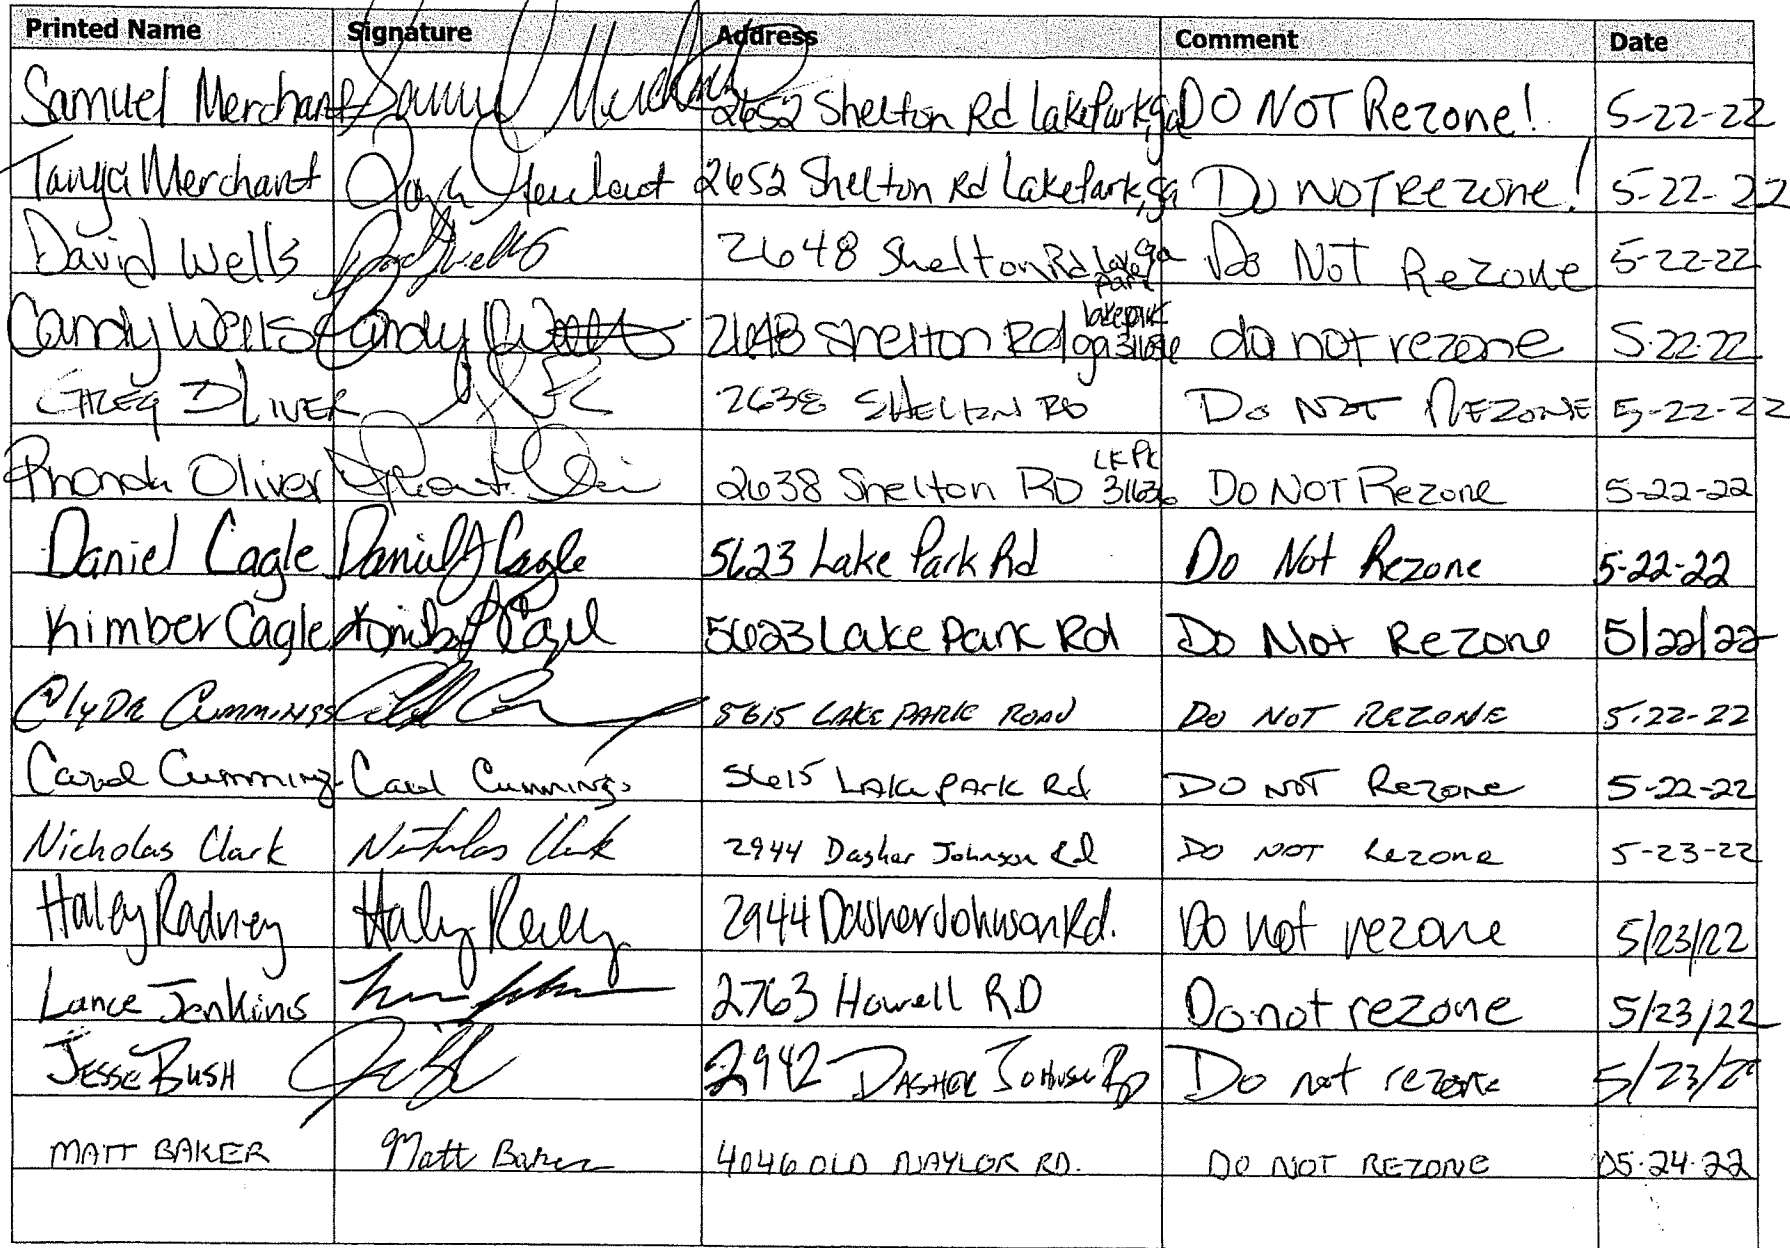 Printed Name Signature Address Comment Date
Samuel Merchant Samuel Merchant 2652 Shelton Rd Lake Park, ga DO NOT Rezone! 5-22-22
Tanya Merchant Tanya Merchant 2652 Shelton Rd Lake Park, ga DO NOT Rezone! 5-22-22
David Wells David Wells 2648 Shelton Rd Lake Park ga Do Not Rezone 5-22-22
Candy Wells Candy Wells 2648 Shelton Rd lake park ga 31636 do not rezone 5-22-22
GREG OLIVER 2638 SHELTON RD Do NOT REZONE 5-22-22
Rhonda Oliver 2638 Shelton RD LK PK 31636 Do NOT Rezone 5-22-22
Daniel Cagle Daniel J Cagle 5623 Lake Park Rd Do Not Rezone 5-22-22
Kimber Cagle 5623 Lake Park Rd Do Not Rezone 5/22/22
Clyde Cummings 5615 LAKE PARK ROAD DO NOT REZONE 5-22-22
Carol Cummings Carol Cummings 5615 LAKE PARK Rd DO NOT Rezone 5-22-22
Nicholas Clark Nicholas Clark 2944 Dasher Johnson Rd DO NOT Rezone 5-23-22
Haley Radney Haley 2944 Dasher Johnson Rd. Do not rezone 5/23/22
Lance Jenkins 2763 Howell RD Do not rezone 5/23/22
JESSE BUSH 2942 DASHER JOHNSON RD Do not rezone 5/23/22
MATT BAKER Matt Baker 4046 OLD NAYLOR RD. DO NOT REZONE 05-24-22